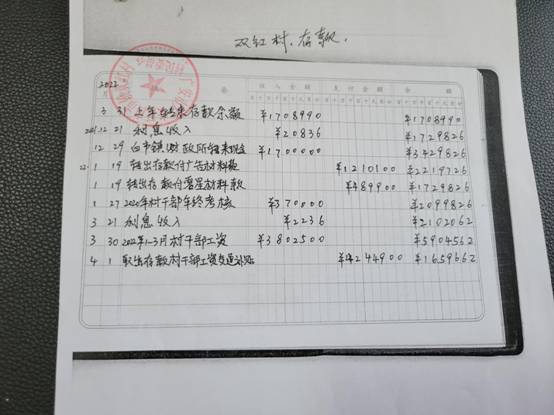 双红村，存款.
2022
收入金额 支付金额 余额
3 31 上年转来存款余额 ¥1708990 ¥1708990
2021.12 21 利息收入 ¥20836 ¥1729826
12 29 白市镇财政所转来现金 ¥1700000 ¥3429826
22.1 19 转出存款付广告材料款 ¥1210100 ¥2219726
1 19 转出存款付零星材料款 ¥489900 ¥1729826
1 27 2020年村干部年终考核 ¥370000 ¥2099826
3 21 利息收入 ¥2236 ¥2102062
3 30 2022年1-3月村干部工资 ¥3802500 ¥5904562
4 1 取出存款村干部工资交通补贴 ¥4244900 ¥1659662